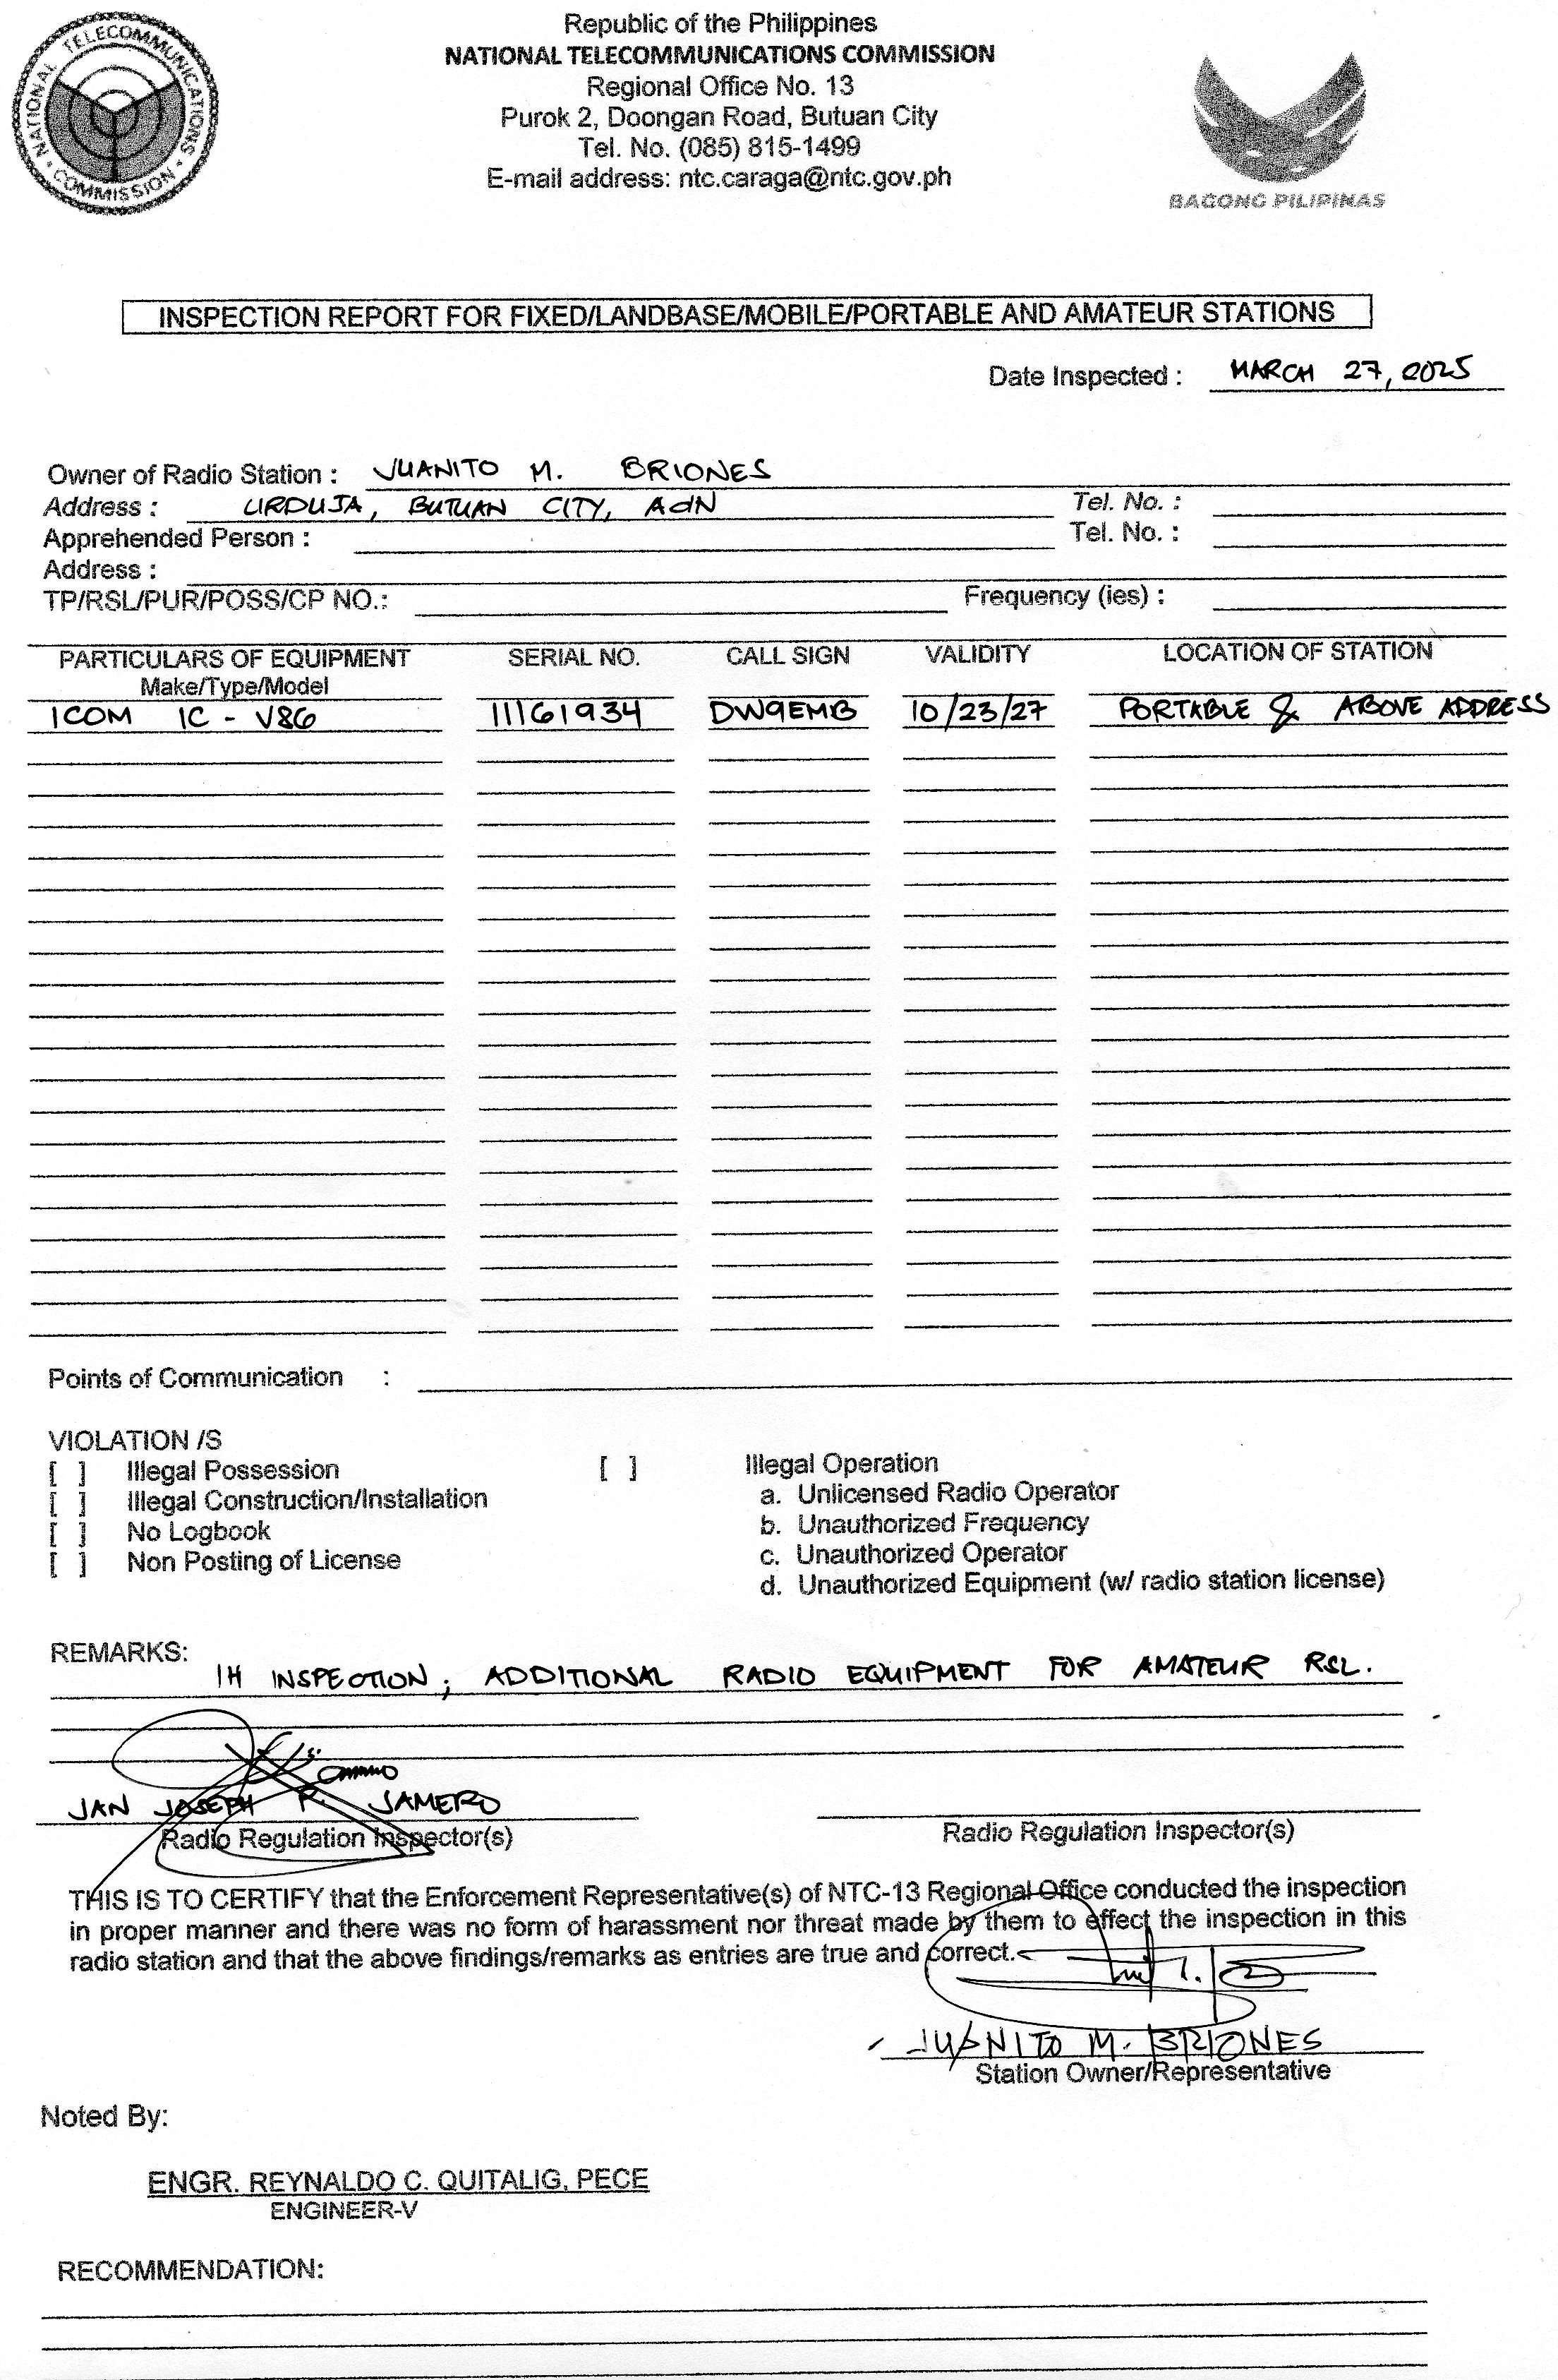 NATIONAL TELECOMMUNICATIONS COMMISSION
Republic of the Philippines
NATIONAL TELECOMMUNICATIONS COMMISSION
Regional Office No. 13
Purok 2, Doongan Road, Butuan City
Tel. No. (085) 815-1499
E-mail address: ntc.caraga@ntc.gov.ph
BAGONG PILIPINAS
INSPECTION REPORT FOR FIXED/LANDBASE/MOBILE/PORTABLE AND AMATEUR STATIONS
Date Inspected : MARCH 27, 2025
Owner of Radio Station : JUANITO M. BRIONES
Address : URDUJA, BUTUAN CITY, AdN Tel. No. :
Apprehended Person : Tel. No. :
Address :
TP/RSL/PUR/POSS/CP NO.: Frequency (ies) :
PARTICULARS OF EQUIPMENT SERIAL NO. CALL SIGN VALIDITY LOCATION OF STATION
Make/Type/Model
ICOM IC - V86 11161934 DW9EMB 10/23/27 PORTABLE & ABOVE ADDRESS
Points of Communication :
VIOLATION /S
[ ] Illegal Possession [ ] Illegal Operation
[ ] Illegal Construction/Installation a. Unlicensed Radio Operator
[ ] No Logbook b. Unauthorized Frequency
[ ] Non Posting of License c. Unauthorized Operator
d. Unauthorized Equipment (w/ radio station license)
REMARKS:
IH INSPECTION; ADDITIONAL RADIO EQUIPMENT FOR AMATEUR RSL.
JAN JOSEPH P. JAMERO
Radio Regulation Inspector(s) Radio Regulation Inspector(s)
THIS IS TO CERTIFY that the Enforcement Representative(s) of NTC-13 Regional Office conducted the inspection
in proper manner and there was no form of harassment nor threat made by them to effect the inspection in this
radio station and that the above findings/remarks as entries are true and correct.
JUANITO M. BRIONES
Station Owner/Representative
Noted By:
ENGR. REYNALDO C. QUITALIG, PECE
ENGINEER-V
RECOMMENDATION: